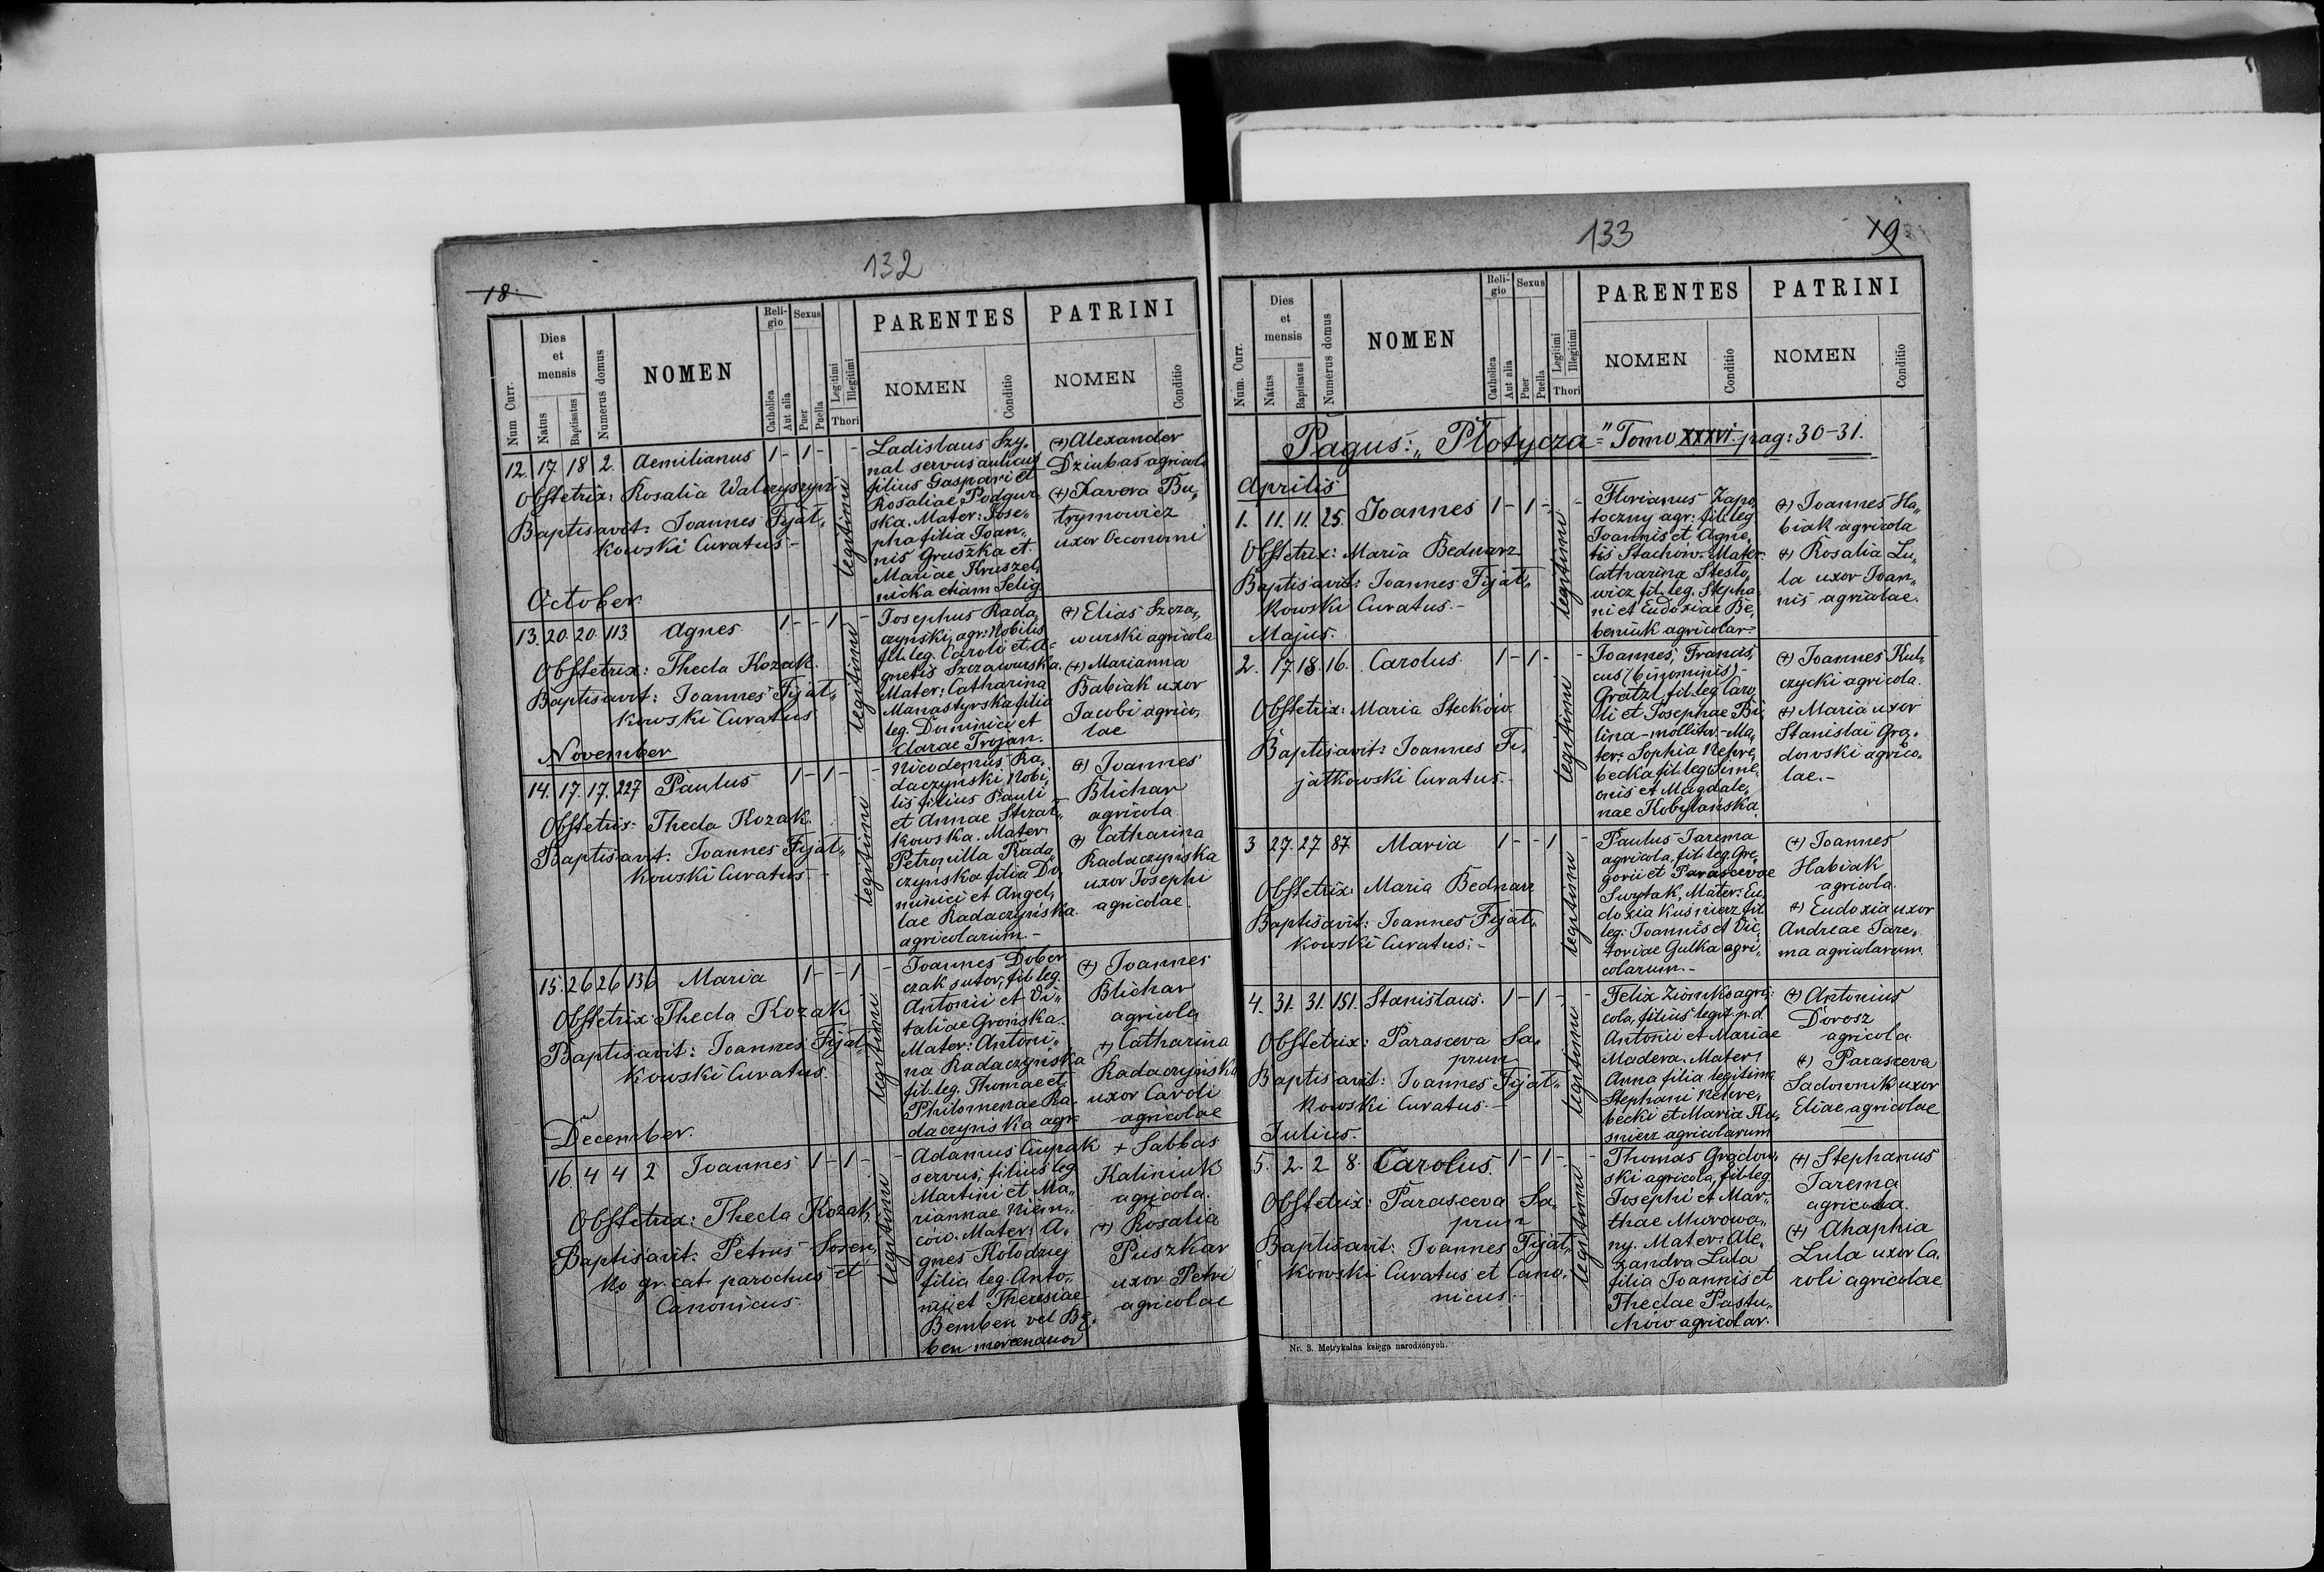 132
18.
Num. Curr.
Dies et mensis
Natus
Baptisatus
Numerus domus
NOMEN
Religio
Catholica
Aut alia
Sexus
Puer
Puella
Legitimi
Illegitimi
Thori
PARENTES
NOMEN
Conditio
PATRINI
NOMEN
Conditio
12. 17 18 2. Aemilianus 1 - 1 - -
Obstetrix: Rosalia
Baptisavit: Joannes Fijał„
kowski Curatus -
legitimi
Ladislaus Szy„
nal servus aulicus
filius Gaspari et
Rosaliae Podgur„
ska. Mater: Jose„
pha filia Joan„
nis Gruszka et
Mariae Kruszel„
nicka etiam Selig
(+) Alexander
Dziubas agricola
(+) Xavera Bu„
trymowicz
uxor Oeconomi
October
13. 20. 20. 113. Agnes 1 - - 1 -
Obstetrix: Thecla Kozak.
Baptisavit: Joannes Fijał„
kowski Curatus
legitimi
Josephus Rada„
czyński, agr: Nobilis
fil. leg. Caroli et A=
gnetis Szczawurska.
Mater: Catharina
Manastyrska filia
leg. Dominici et
Clarae Trojan.
(+) Elias Szcza„
wurski agricola
(+) Marianna
Babiak uxor
Jacobi agrico„
lae
November
14. 17. 17. 227 Paulus 1 - 1 - -
Obstetrix: Thecla Kozak.
Baptisavit: Joannes Fijał„
kowski Curatus -
legitimi
Nicodemus Ra„
daczyński Nobi„
lis filius Pauli
et Annae Strzał„
kowska. Mater:
Petronilla Rada„
czyńska filia Do„
minici et Angel„
lae Radaczyńska.
agricolarum. -
(+) Joannes
Blichar
agricola.
(+) Catharina
Radaczyńska
uxor Josephi
agricolae.
15. 26 26 136 Maria 1 - - 1 -
Obstetrix: Thecla Kozak
Baptisavit: Joannes Fijał„
kowski Curatus.
legitimi
Joannes Dober
czak sutor, fil. leg.
Antonii et Vi„
taliae Grońska.
Mater: Antoni„
na Radaczyńska
fil. leg. Thomae et
Philomenae Ra„
daczyńska agr.
(+) Joannes
Blichar
agricola
(+) Catharina
Radaczyńska
uxor Caroli
agricolae
December.
16. 4 4 2 Joannes 1 - 1 - -
Obstetrix: Thecla Kozak
Baptisavit: Petrus Sosen„
ko gr. cat. parochus et
Canonicus.
legitimi
Adamus Ciupak
servus, filius leg.
Martini et Ma„
riannae Niem„
ców. Mater: A„
gnes Kołodziej
filia leg. Anto„
nii et Theresiae
Bemben vel Bę„
ben mercenarior
+ Sabbas
Kaliniuk
agricola.
(+) Rosalia
Puszkar
uxor Petri
agricolae
133
19
Num. Curr.
Dies et mensis
Natus
Baptisatus
Numerus domus
NOMEN
Religio
Catholica
Aut alia
Sexus
Puer
Puella
Legitimi
Illegitimi
Thori
PARENTES
NOMEN
Conditio
PATRINI
NOMEN
Conditio
Pagus: „Płotycza" Tomo XXXVI. pag: 30-31.
Aprilis
1. 11. 11. 25. Joannes 1 - 1 - -
Obstetrix: Maria Bednarz
Baptisavit: Joannes Fijał„
kowski Curatus. -
legitimi
Florianus Zapo„
toczny agr: fil. leg.
Joannis et Agne„
tis Stachów. Mater:
Catharina Stesło„
wicz fil. leg. Stepha„
ni et Eudoxiae Be„
beniuk agricolar=
(+) Joannes Ha„
biak agricola
(+) Rosalia Lu„
la uxor Joan„
nis agricolae.
Majus.
2. 17. 18. 16. Carolus. 1 - 1 - -
Obstetrix: Maria Steckow
Baptisavit: Joannes Fi„
jałkowski Curatus. -
legitimi
Joannes, Francis„
cus (binominis) -
Gratzl, fil. leg. Caro„
li et Josephae Bi„
lina - molitor. - Ma„
ter: Sophia Niepre„
becka fil. leg. Sime„
onis et Magdale„
nae Kobylańska.
(+) Joannes Kul„
czycki agricola.
(+) Maria uxor
Stanislai Gra„
dowski agrico„
lae. -
3 27. 27 87 Maria 1 - - 1 -
Obstetrix: Maria Bednarz
Baptisavit: Joannes Fijał„
kowski Curatus: -
legitimi
Paulus Jarema
agricola, fil. leg. Gre„
gorii et Parascevae
Swytak, Mater: Eu„
doxia Kuśnierz fil.
leg: Joannis et Vic„
toriae Gulka agri„
colarum. -
(+) Joannes
Habiak
agricola.
(+) Eudoxia uxor
Andreae Jare„
ma agricolarum.
4. 31. 31. 151. Stanislaus. 1 - 1 - -
Obstetrix: Parasceva Sa„
prun
Baptisavit: Joannes Fijał„
kowski Curatus. -
legitimi
Felix Ziomko agri„
cola, filius legit. p. d.
Antonii et Mariae
Madera. Mater:
Anna filia legitima
Stephani Niepre„
becki et Maria Ku„
śnierz agricolarum
(+) Antonius
Dorosz
agricola.
(+) Parasceva
Sadownik uxor
Eliae agricolae
Julius.
5. 2. 2 8. Carolus. 1 - 1 - -
Obstetrix: Parasceva Sa„
prun
Baptisavit: Joannes Fijał„
kowski Curatus et Cano„
nicus. -
legitimi
Thomas Gradow„
ski agricola, fil. leg.
Josephi et Mar„
thae Murowa„
ny. Mater: Ale„
xandra Lula
filia Joannis et
Theclae Pastu„
chów agricolar.
(+) Stephanus
Jarema
agricola.
(+) Ahaphia
Lula uxor Ca„
roli agricolae
Nr. 3. Metrykalna księga narodzonych.